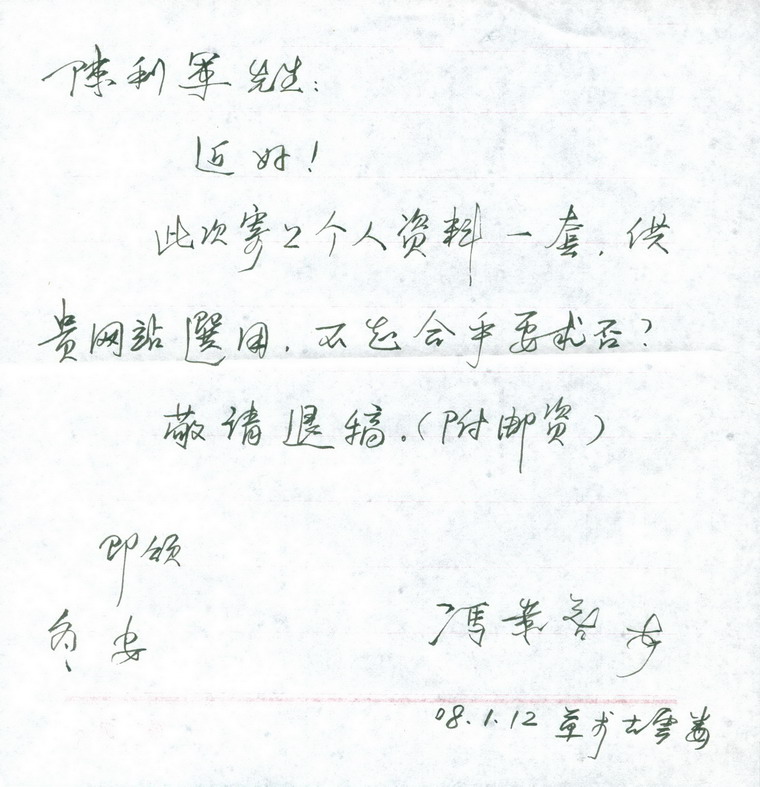 陳利軍先生：
近好！
此次寄上个人资料一套，供
贵网站選用，不知合乎要求否？
敬请退稿。（附邮资）
即颂
冬安
馮業
08.1.12 草 古雲